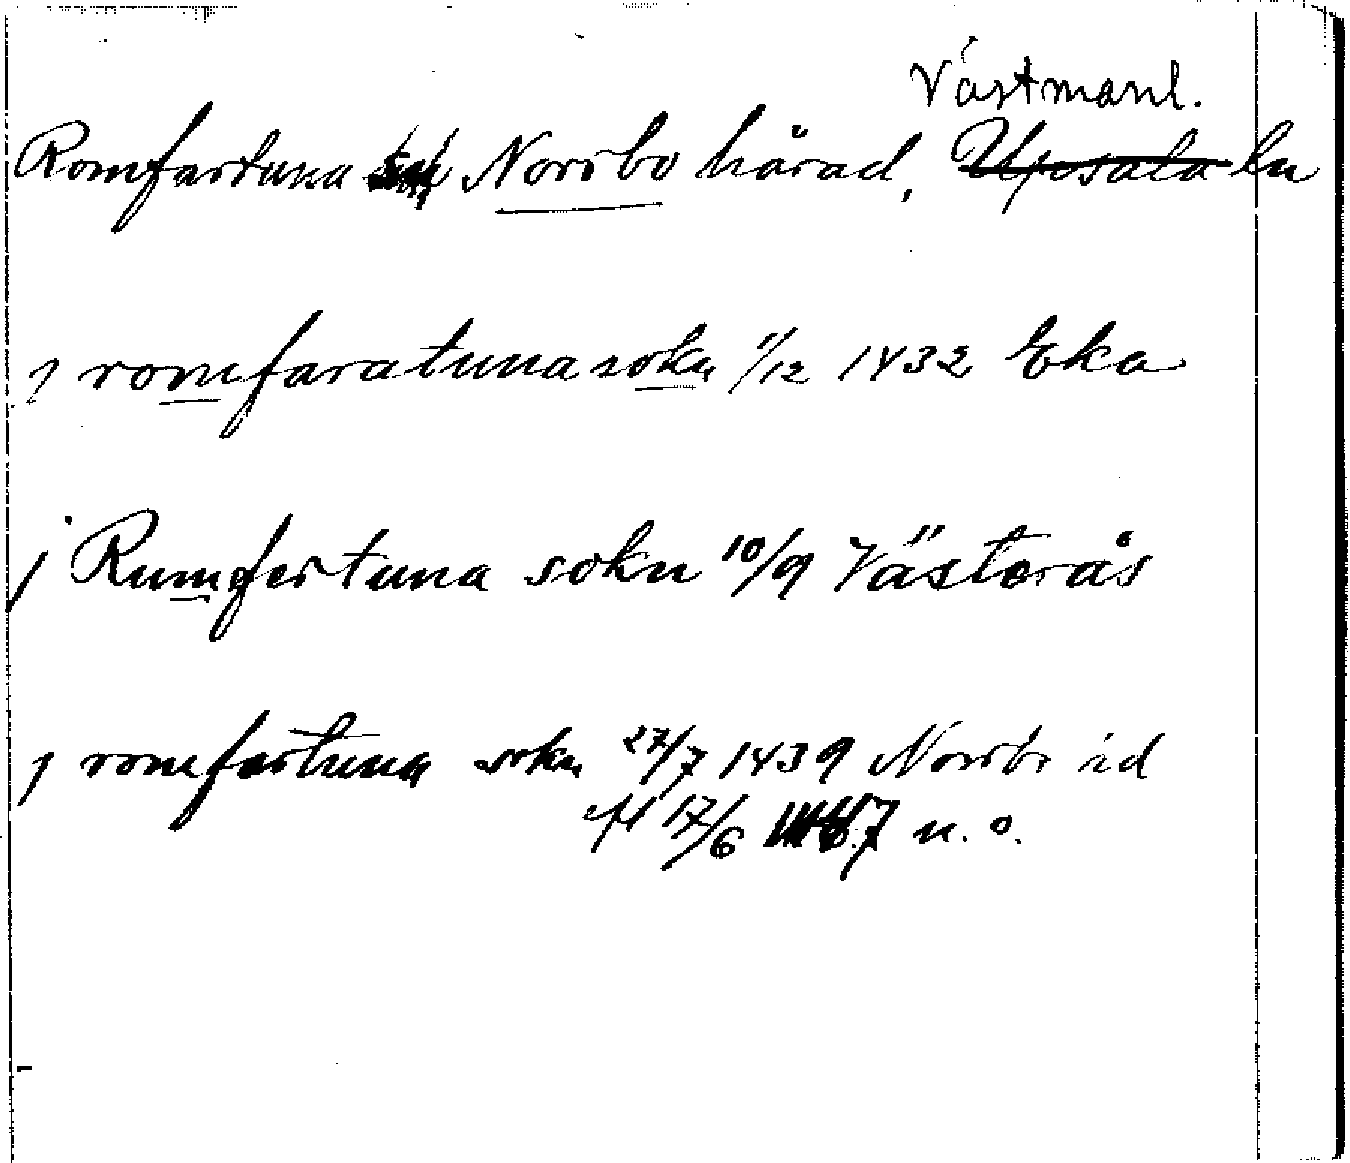 Västmanl.
Romfartuna sn Norrbo härad, Upsala län
j romfaratuna sokn 1/12 1432 Eka
j Rumfertuna sokn 10/9 Västerås
j romfartuna sokn 27/7 1439 Norrbo
17/6 n. o.